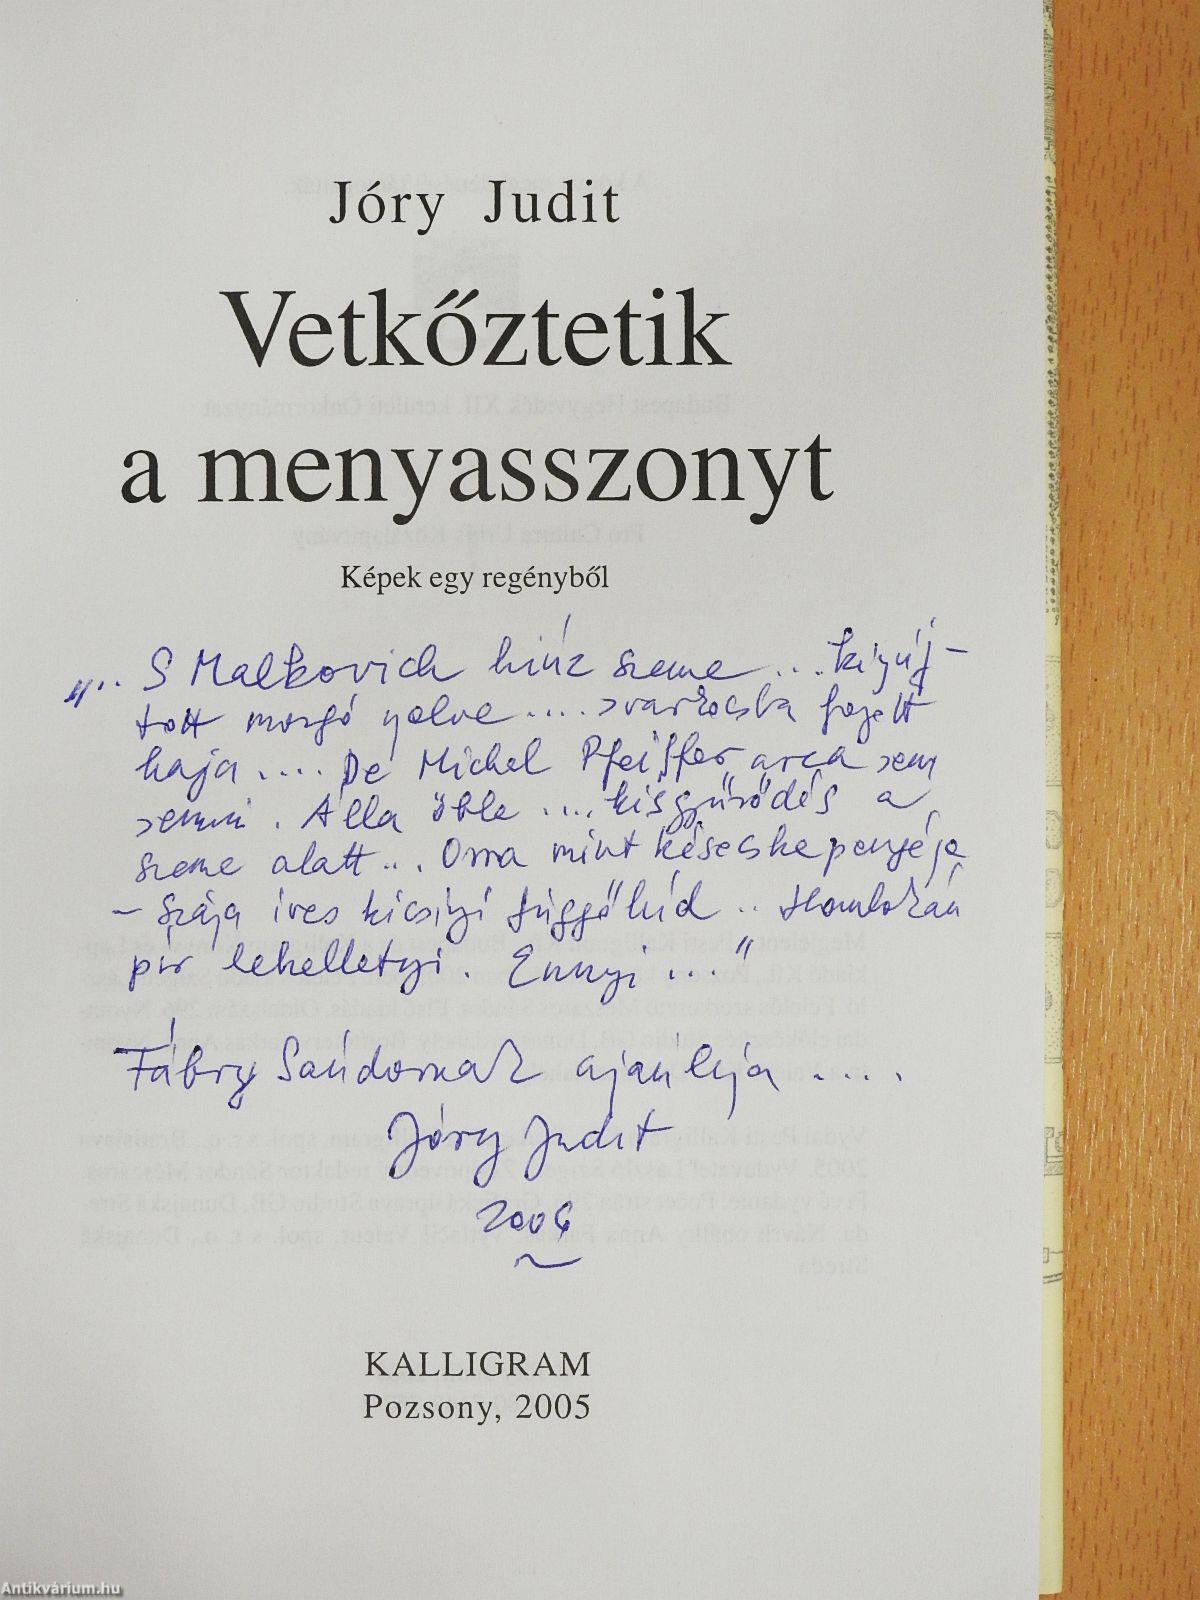 Jóry Judit
Vetkőztetik
a menyasszonyt
Képek egy regényből
"... S Malkovich hiúz szeme ... kinyúj-
tott mozgó nyelve .... varkocsba fogott
haja .... De Michel Pfeiffer arca sem
semmi. Álla öble .... kisgyűrődés a
szeme alatt... Orra mint késecske pengéje
– szája íves kicsinyi függőhíd .. Homlokán
pír lehelletnyi. Ennyi ..."
Fábry Sándornak ajánlja ....
Jóry Judit
2006
KALLIGRAM
Pozsony, 2005
Antikvárium.hu